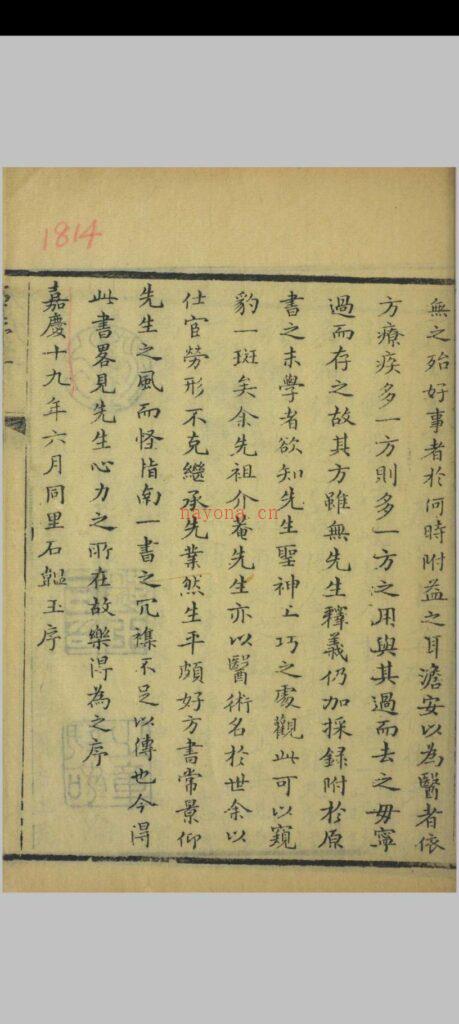 1814
無之殆好事者於何時附益之耳澹安以為醫者依
方療疾多一方則多一方之用與其過而去之毋寧
過而存之故其方雖無先生釋義仍加採録附於原
書之末學者欲知先生聖神工巧之處觀此可以窺
豹一斑矣余先祖介菴先生亦以醫術名於世余以
仕宦勞形不克繼承先業然生平頗好方書常景仰
先生之風而怪指南一書之冗襍不足以傳也今得
此書畧見先生心力之所在故樂得為之序
嘉慶十九年六月同里石韞玉序
nayona.cn